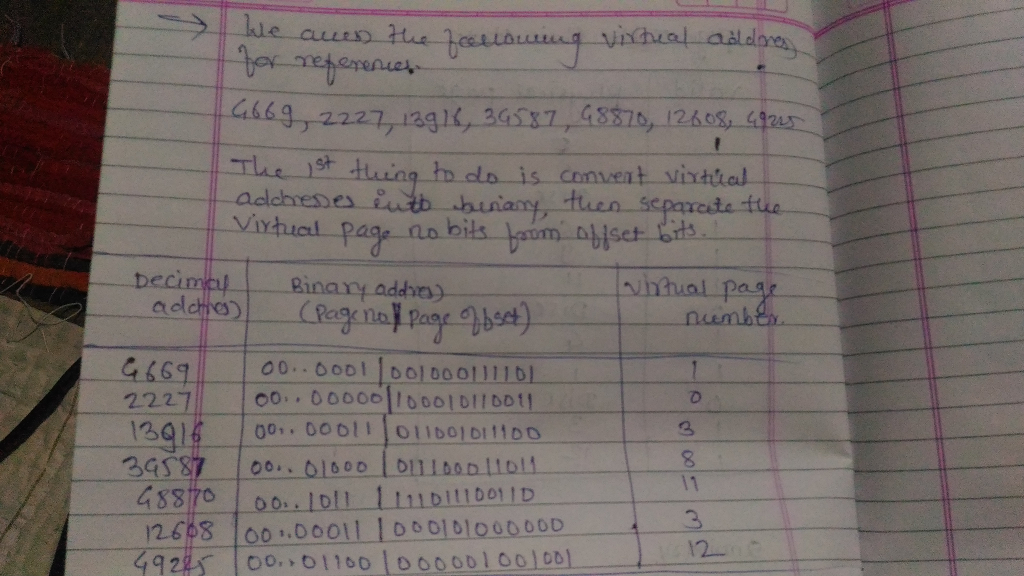 → We access the following virtual address
for references.
4669, 2227, 13916, 34587, 48870, 12608, 49225
The 1st thing to do is convert virtual
addresses into binary, then separate the
Virtual page no bits from offset bits.
Decimal address | Binary address (Page no | page offset) | Virtual page number
4669 | 00..0001 | 001000111101 | 1
2227 | 00..00000 | 100010110011 | 0
13916 | 00..00011 | 011001011100 | 3
34587 | 00..01000 | 011100011011 | 8
48870 | 00..1011 | 111011100110 | 11
12608 | 00..00011 | 000101000000 | 3
49225 | 00..01100 | 000001001001 | 12